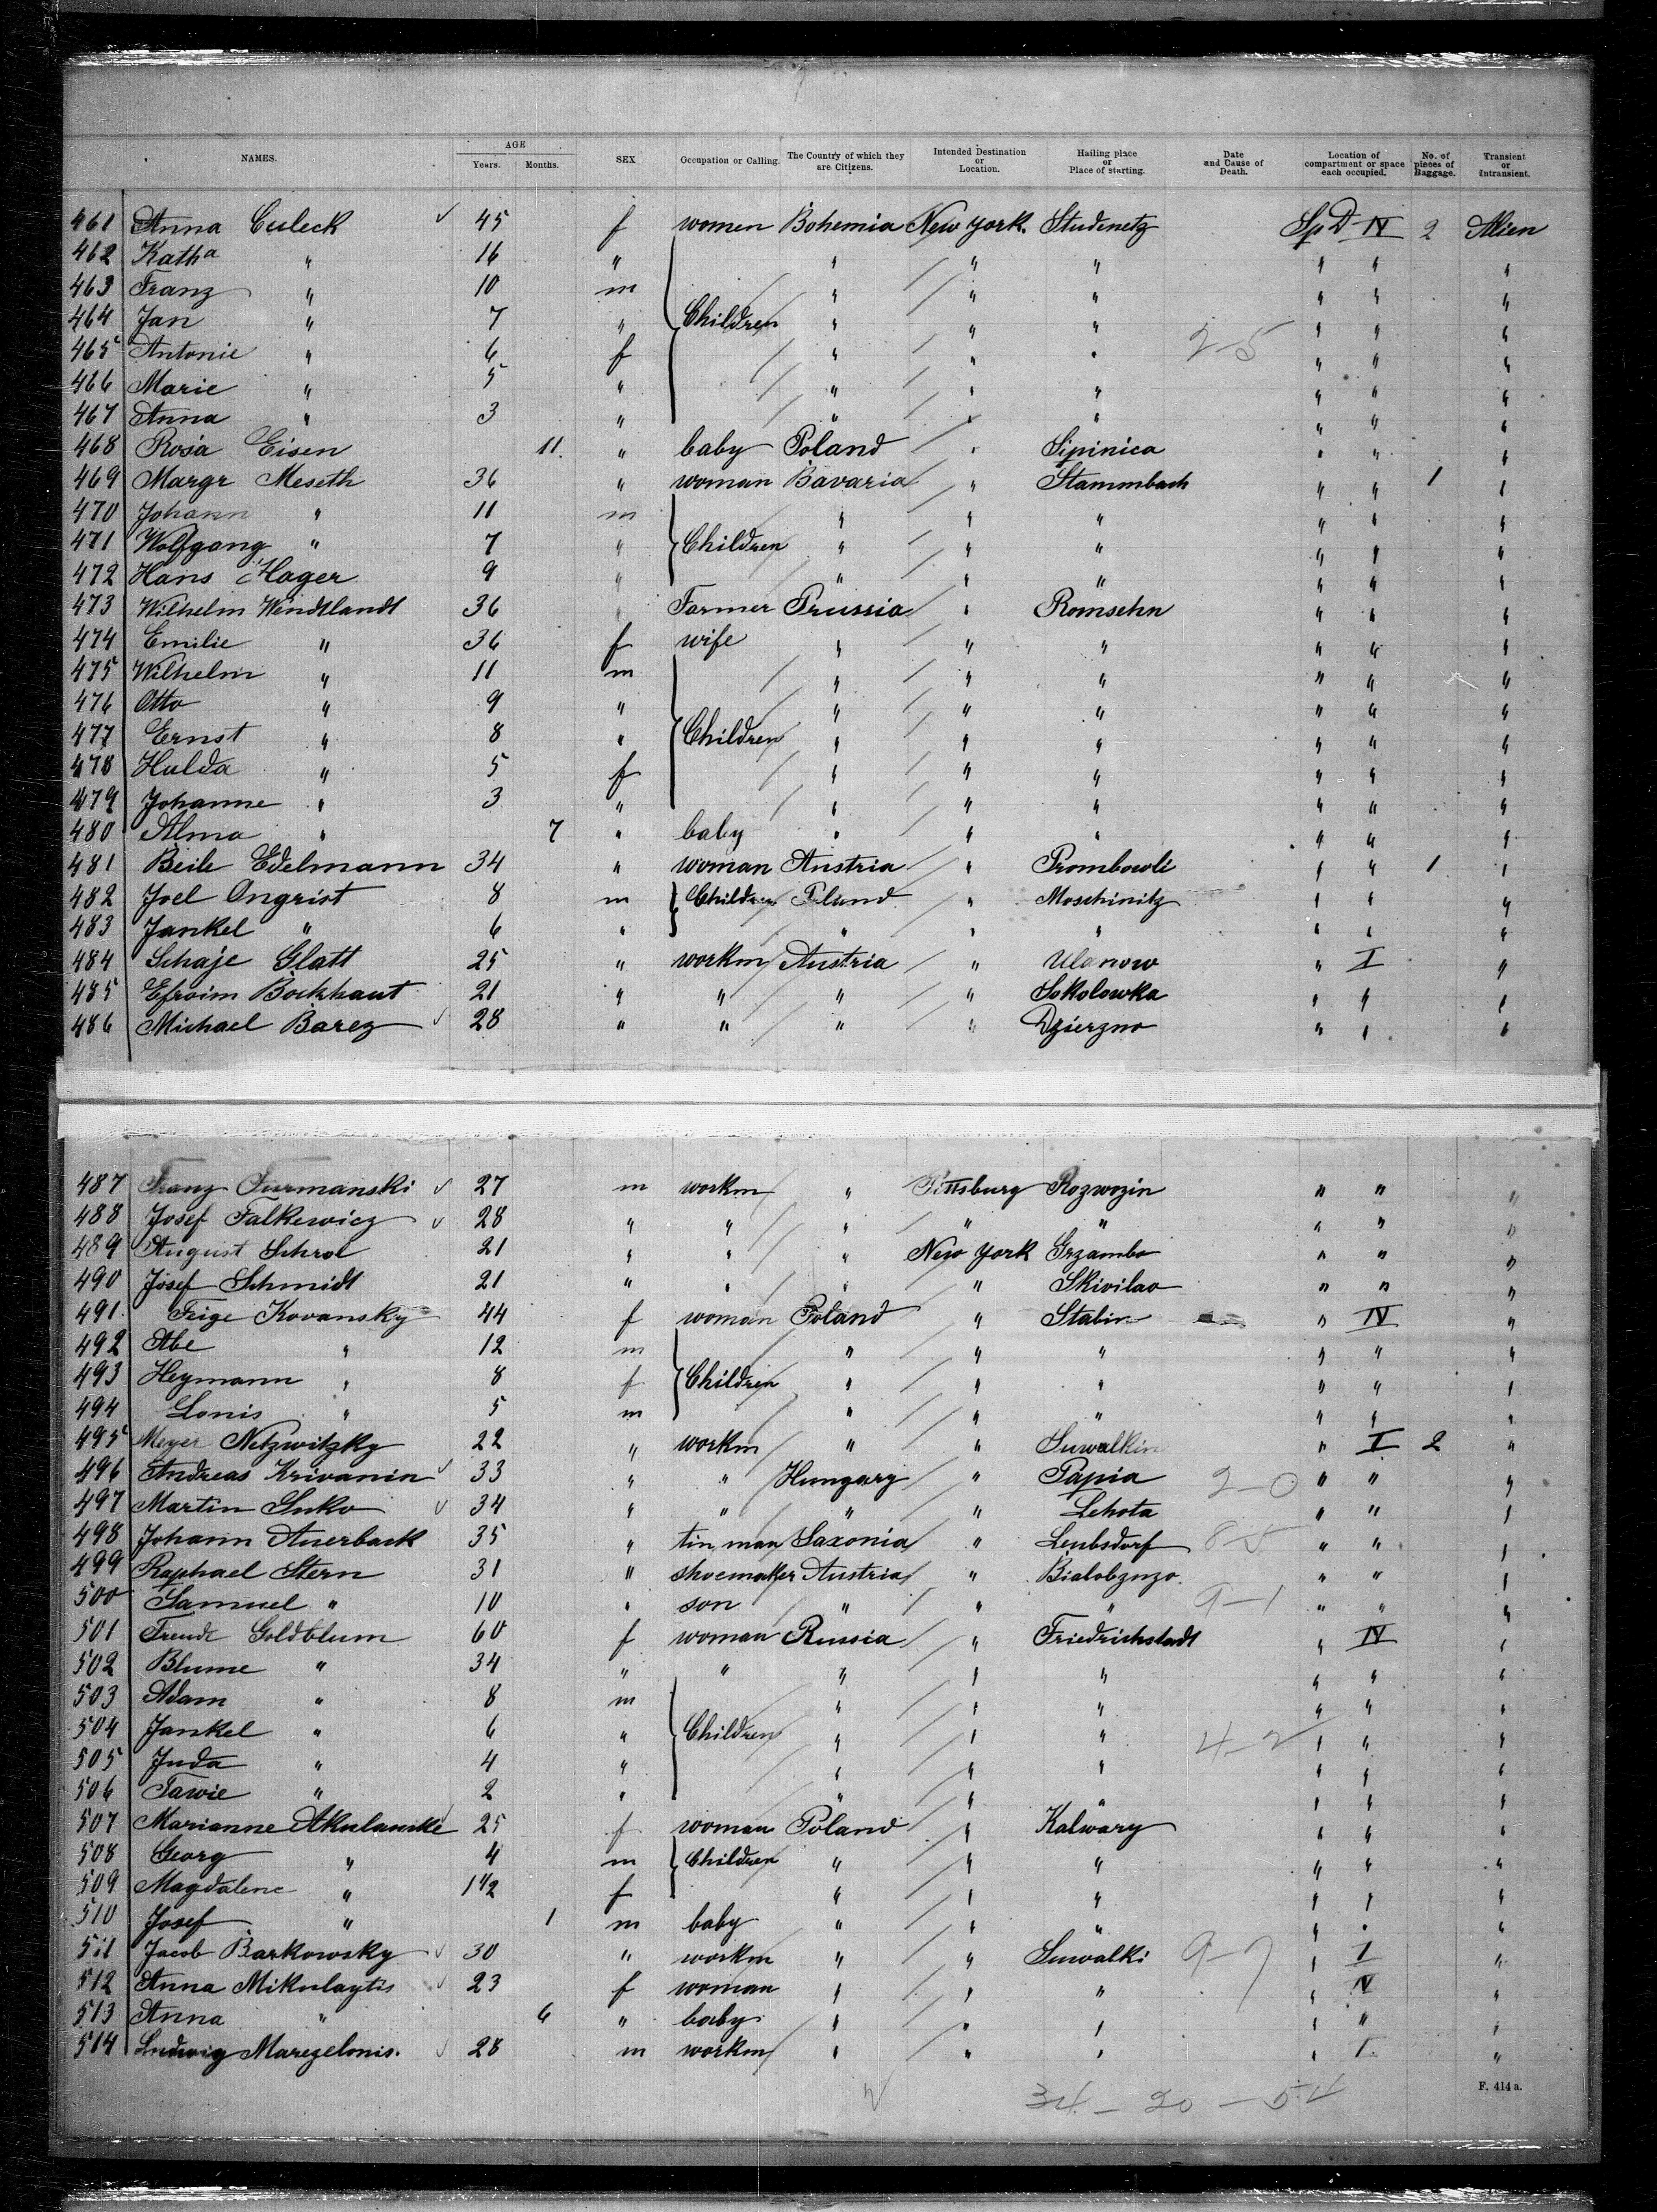 NAMES. AGE Years. Months. SEX Occupation or Calling. The Country of which they are Citizens. Intended Destination or Location. Hailing place or Place of starting. Date and Cause of Death. Location of compartment or space each occupied. No. of pieces of Baggage. Transient or Intransient.
461 Anna Culeck ✓ 45 f women Bohemia New York. Studenetz Sp D IV 2 Alien
462 Katha " 16 " " " " " " "
463 Franz " 10 m " " " " " "
464 Jan " 7 " Children " " " " " "
465 Antonie " 6 f " " " 2-5 " " "
466 Marie " 5 " " " " " " "
467 Anna " 3 " " " " " " "
468 Rosa Eisen 11. " baby Poland " Sipinica " " "
469 Margr Meseth 36 " woman Bavaria " Stammbach " " 1 "
470 Johann " 11 m " " " " " "
471 Wolfgang " 7 " Children " " " " " "
472 Hans Hager 9 " " " " " " "
473 Wilhelm Wendtlandt 36 " Farmer Prussia " Romsehn " " "
474 Emilie " 36 f wife " " " " " "
475 Wilhelm " 11 m " " " " " "
476 Otto " 9 " " " " " " "
477 Ernst " 8 " Children " " " " " "
478 Hulda " 5 f " " " " " "
479 Johanne " 3 " " " " " " "
480 Alma " 7 " baby " " " " " "
481 Beile Edelmann 34 " woman Austria " Prombowli " " 1 "
482 Joel Ongrist 8 m Children Poland " Moschinitz " " "
483 Jankel " 6 " " " " " " "
484 Schaje Glatt 25 " workm Austria " Ulanow " I "
485 Efroim Bockhaut 21 " " " " Sokolowka " " "
486 Michael Barez ✓ 28 " " " " Dzierzno " " "
487 Franz Furmanski ✓ 27 m workm " Pittsburg Rozwozin " " "
488 Josef Falkewicz ✓ 28 " " " " " " " "
489 August Schrol 21 " " " New York Grzambo " " "
490 Josef Schmidt 21 " " " " Skivilao " " "
491. Feige Kovansky 44 f woman Poland " Stabin " IV "
492 Abe " 12 m " " " " " "
493 Heymann " 8 f Children " " " " " "
494 Lonis " 5 m " " " " " "
495 Meyer Netzwitzky 22 " workm " " Suwalkin " I 2 "
496 Andreas Krivanin ✓ 33 " " Hungary " Papia 2-0 " " "
497 Martin Suko ✓ 34 " " " " Lehota " " "
498 Johann Auerback 35 " tin man Saxonia " Leubsdorf 8-5 " " "
499 Raphael Stern 31 " shoemaker Austria " Bialobznzo. " " "
500 Samuel " 10 " son " " " 9-1 " " "
501 Freude Goldblum 60 f woman Russia " Friedrichstadt " IV "
502 Blume " 34 " " " " " " " "
503 Adam " 8 m " " " " " "
504 Jankel " 6 " Children " " " 4-2 " " "
505 Juda " 4 " " " " " " "
506 Tawie " 2 " " " " " " "
507 Marianne ✓ 25 f woman Poland " Kalwary " " "
508 Georg " 4 m Children " " " " " "
509 Magdalene " 1 1/2 f " " " " " "
510 Josef " 1 m baby " " " " " "
511 Jacob Barkowsky ✓ 30 " workm " " Suwalki 9-7 " I "
512 Anna Mikulaytis ✓ 23 f woman " " " " IV "
513 Anna " 6 " baby " " " " " "
514 Ludwig Maregelonis. ✓ 28 m workm " " " " I. "
F. 414 a.
34 - 20 - 54